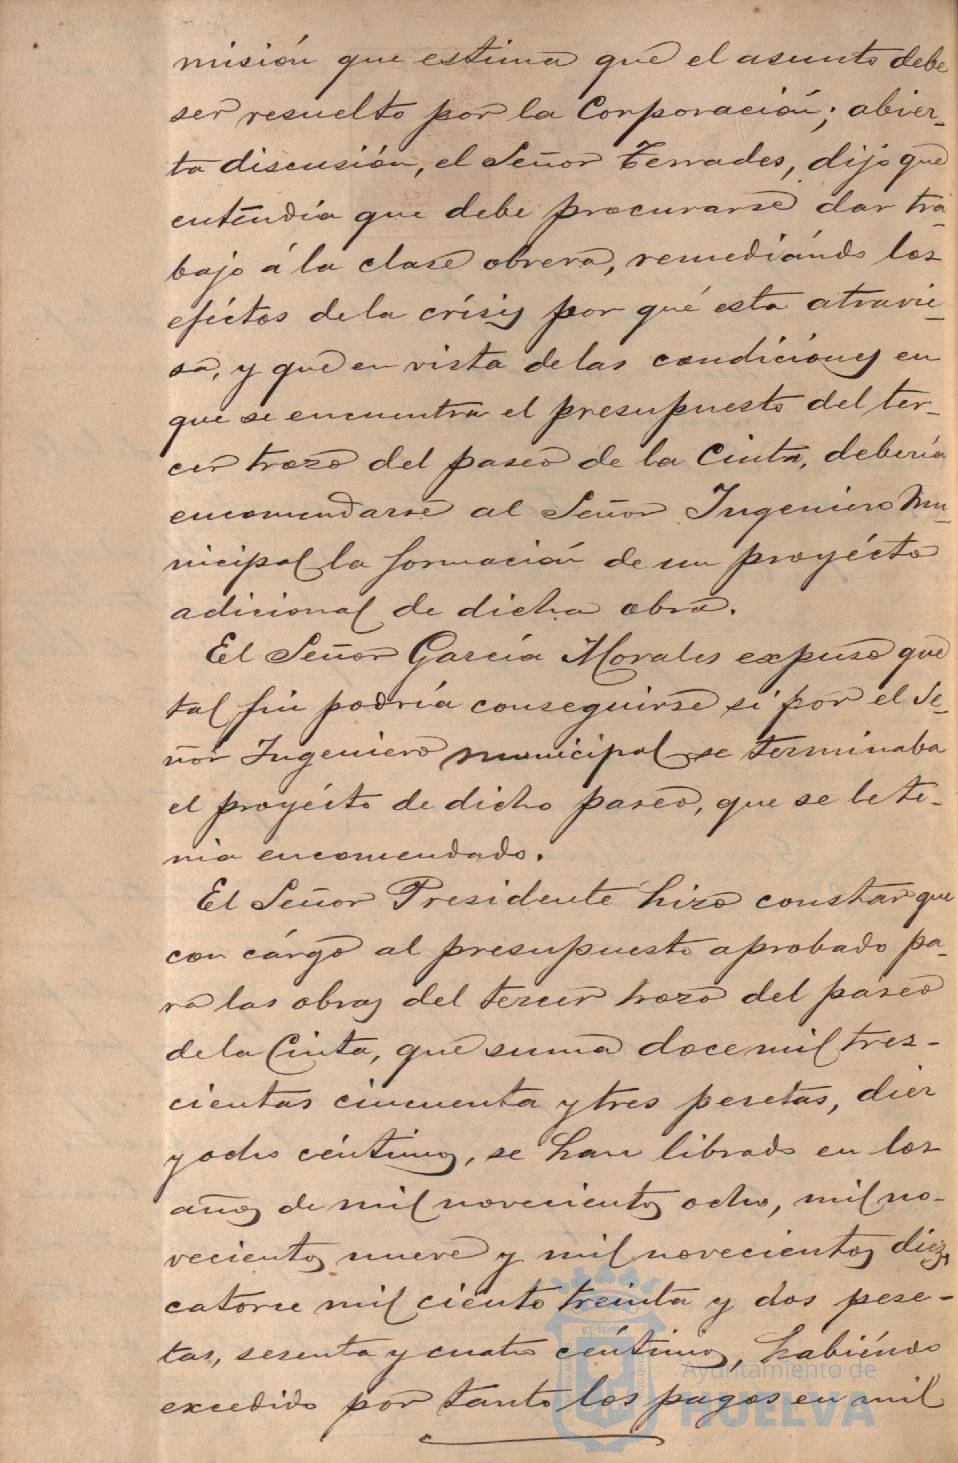 misión que estima que el asunto debe
ser resuelto por la Corporación; abier-
ta discusión, el Señor Terrades, dijo que
entendía que debe procurarse dar tra-
bajo á la clase obrera, remediándo los
eféctos de la crísis por qué esta atravie-
sa, y que en vista de las condiciones en
que se encuentra el presupuesto del ter-
cer trozo del paseo de la Cinta, debería
encomendarse al Señor Ingeniero Mu-
nicipal la formación de un proyécto
adicional de dicha obra.
El Señor García Morales expuso que
tal fin podría conseguirse si por el Se-
ñor Ingeniero municipal se terminaba
el proyécto de dicho paseo, que se le te-
nia encomendado.
El Señor Presidente hizo constar que
con cárgo al presupuesto aprobado pa-
ra las obras del tercer trozo del paseo
de la Cinta, que suma doce mil tres-
cientas cincuenta y tres pesetas, diez
y ocho céntimos, se han librado en los
años de mil novecientos ocho, mil no-
vecientos nueve y mil novecientos diez,
catorce mil ciento treinta y dos pese-
tas, sesenta y cuatro céntimos, habiéndo
excedido por tanto los pagos en mil
Ayuntamiento de
HUELVA